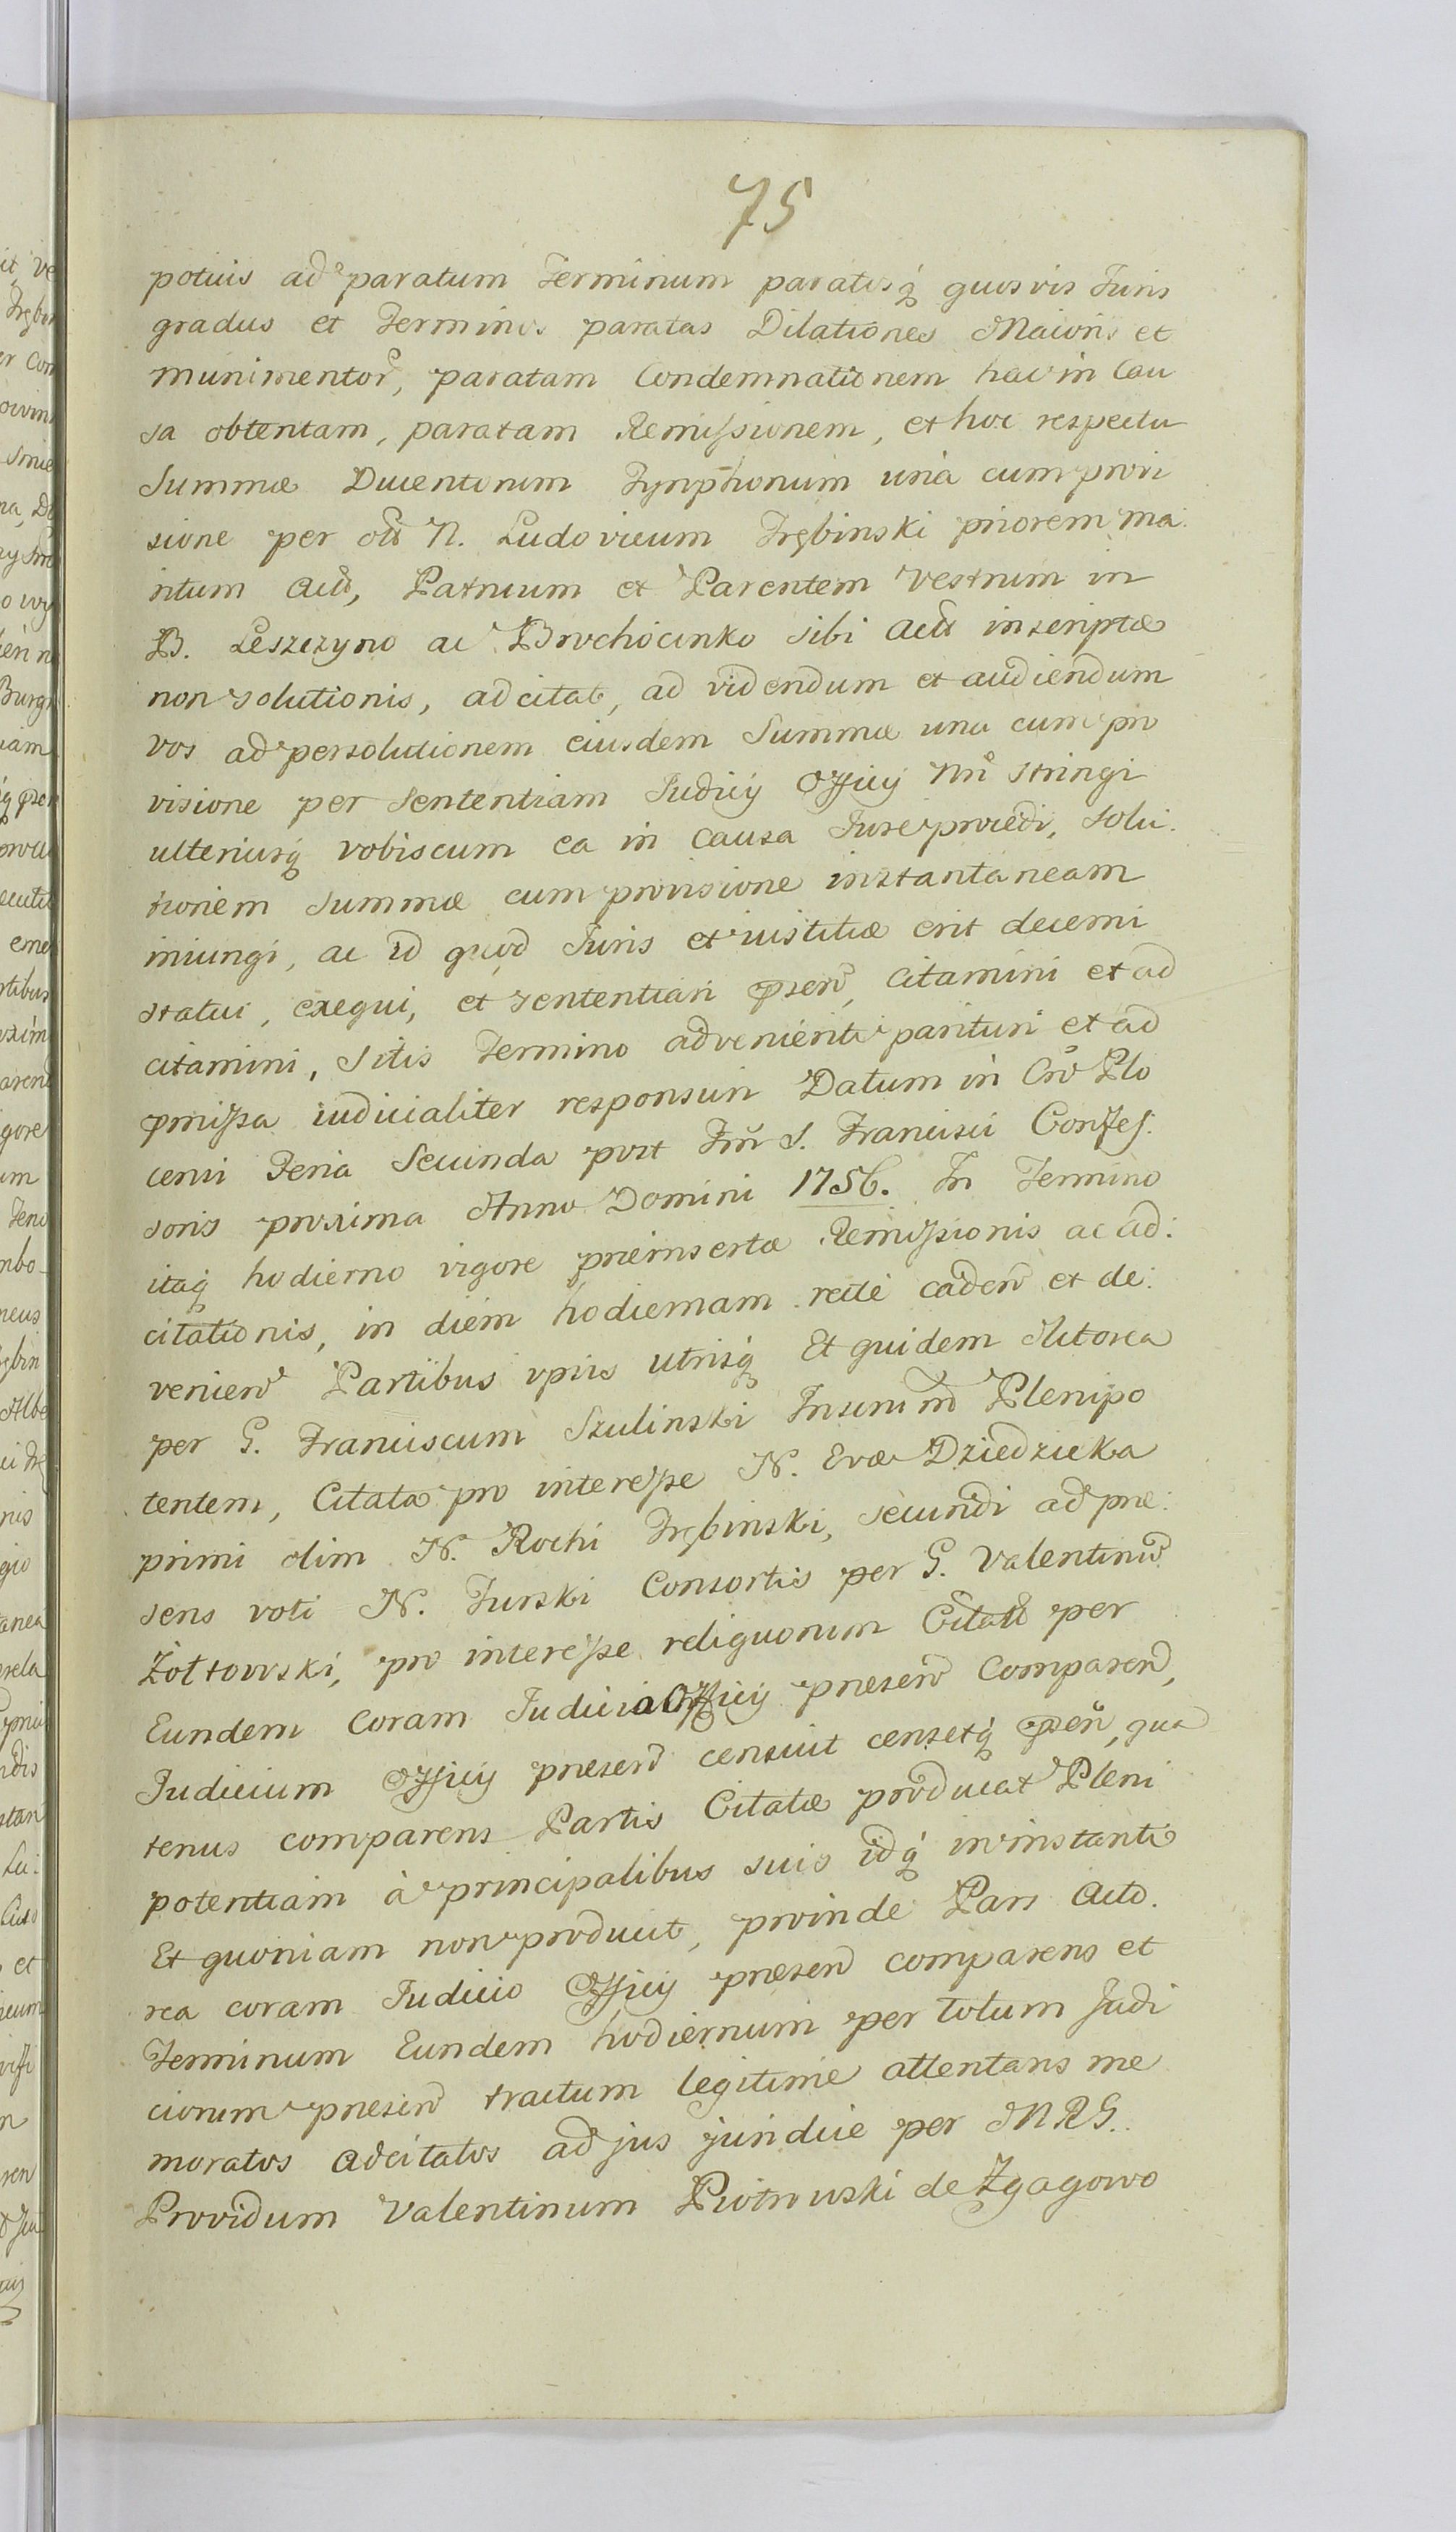 75
potius ad paratum Terminum paratosq́ quosvis Juris
gradus et Terminos paratas Dilationes Maioris et
munimentor̃, paratam Condemnationem hac in Cau
sa obtentam, paratam Remissionem, et hoc respectu
Summæ Ducentorum Tynphonum una cum provi
sione per N. Ludovicum Trębinski priorem ma:
ritum Patruum et Parentem Vestrum in
B. Leszczyno ac Brochocinko sibi inscriptæ
non solutionis, adcitat, ad videndum et audiendum
vos ad persolutionem eiusdem Summæ una cum pro
visione per Sententiam Judicÿ Officÿ stringi
ulteriusq́ vobiscum ea in Causa Jure procedi, Solu:
tionem Summæ cum provisione instantaneam
iniungi, ac id quod Juris et iustitiæ erit decerni
statui, exequi, et sententiari citamini et ad
citamini, Sitis Termino advenienti parituri et ad
pmissa iudicialiter responsuri Datum in Plo
censi Feria Secunda post S. Francisci Confes:
soris proxima Anno Domini 1756. In Termino
itaq́ hodierno vigore præinsertæ Remissionis ac ad:
citationis, in diem hodiernam recte caden̄ et de:
venien̄ Partibus utrisq́ Et quidem Actorea
per G. Franciscum Szulinski Plenipo
tentem, Citata pro interesse N. Evæ Dziedzicka
primi olim N. Rochi Trębinski, secundi ad præ:
sens voti N. Turski Consortis per G. Valentinũ
Żołtowski, pro interesse reliquorum Citat per
Eundem Coram Judicio Officÿ præsen̄ Comparen̄,
Judicium Officÿ præsen̄ censuit censetq́ qua
tenus comparens Partis Citatæ producat Pleni
potentiam à principalibus suis idq́ in instanti
Et quoniam non producit, proinde Pars Acto.
rea coram Judicio Officÿ præsen̄ comparens et
Terminum Eundem hodiernum per totum Judi
ciorum præsen̄ tractum legitime attentans me
moratos Adcitatos ad jus juridice per MRS.
Providum Valentinum Piotrowski de Zgagowo